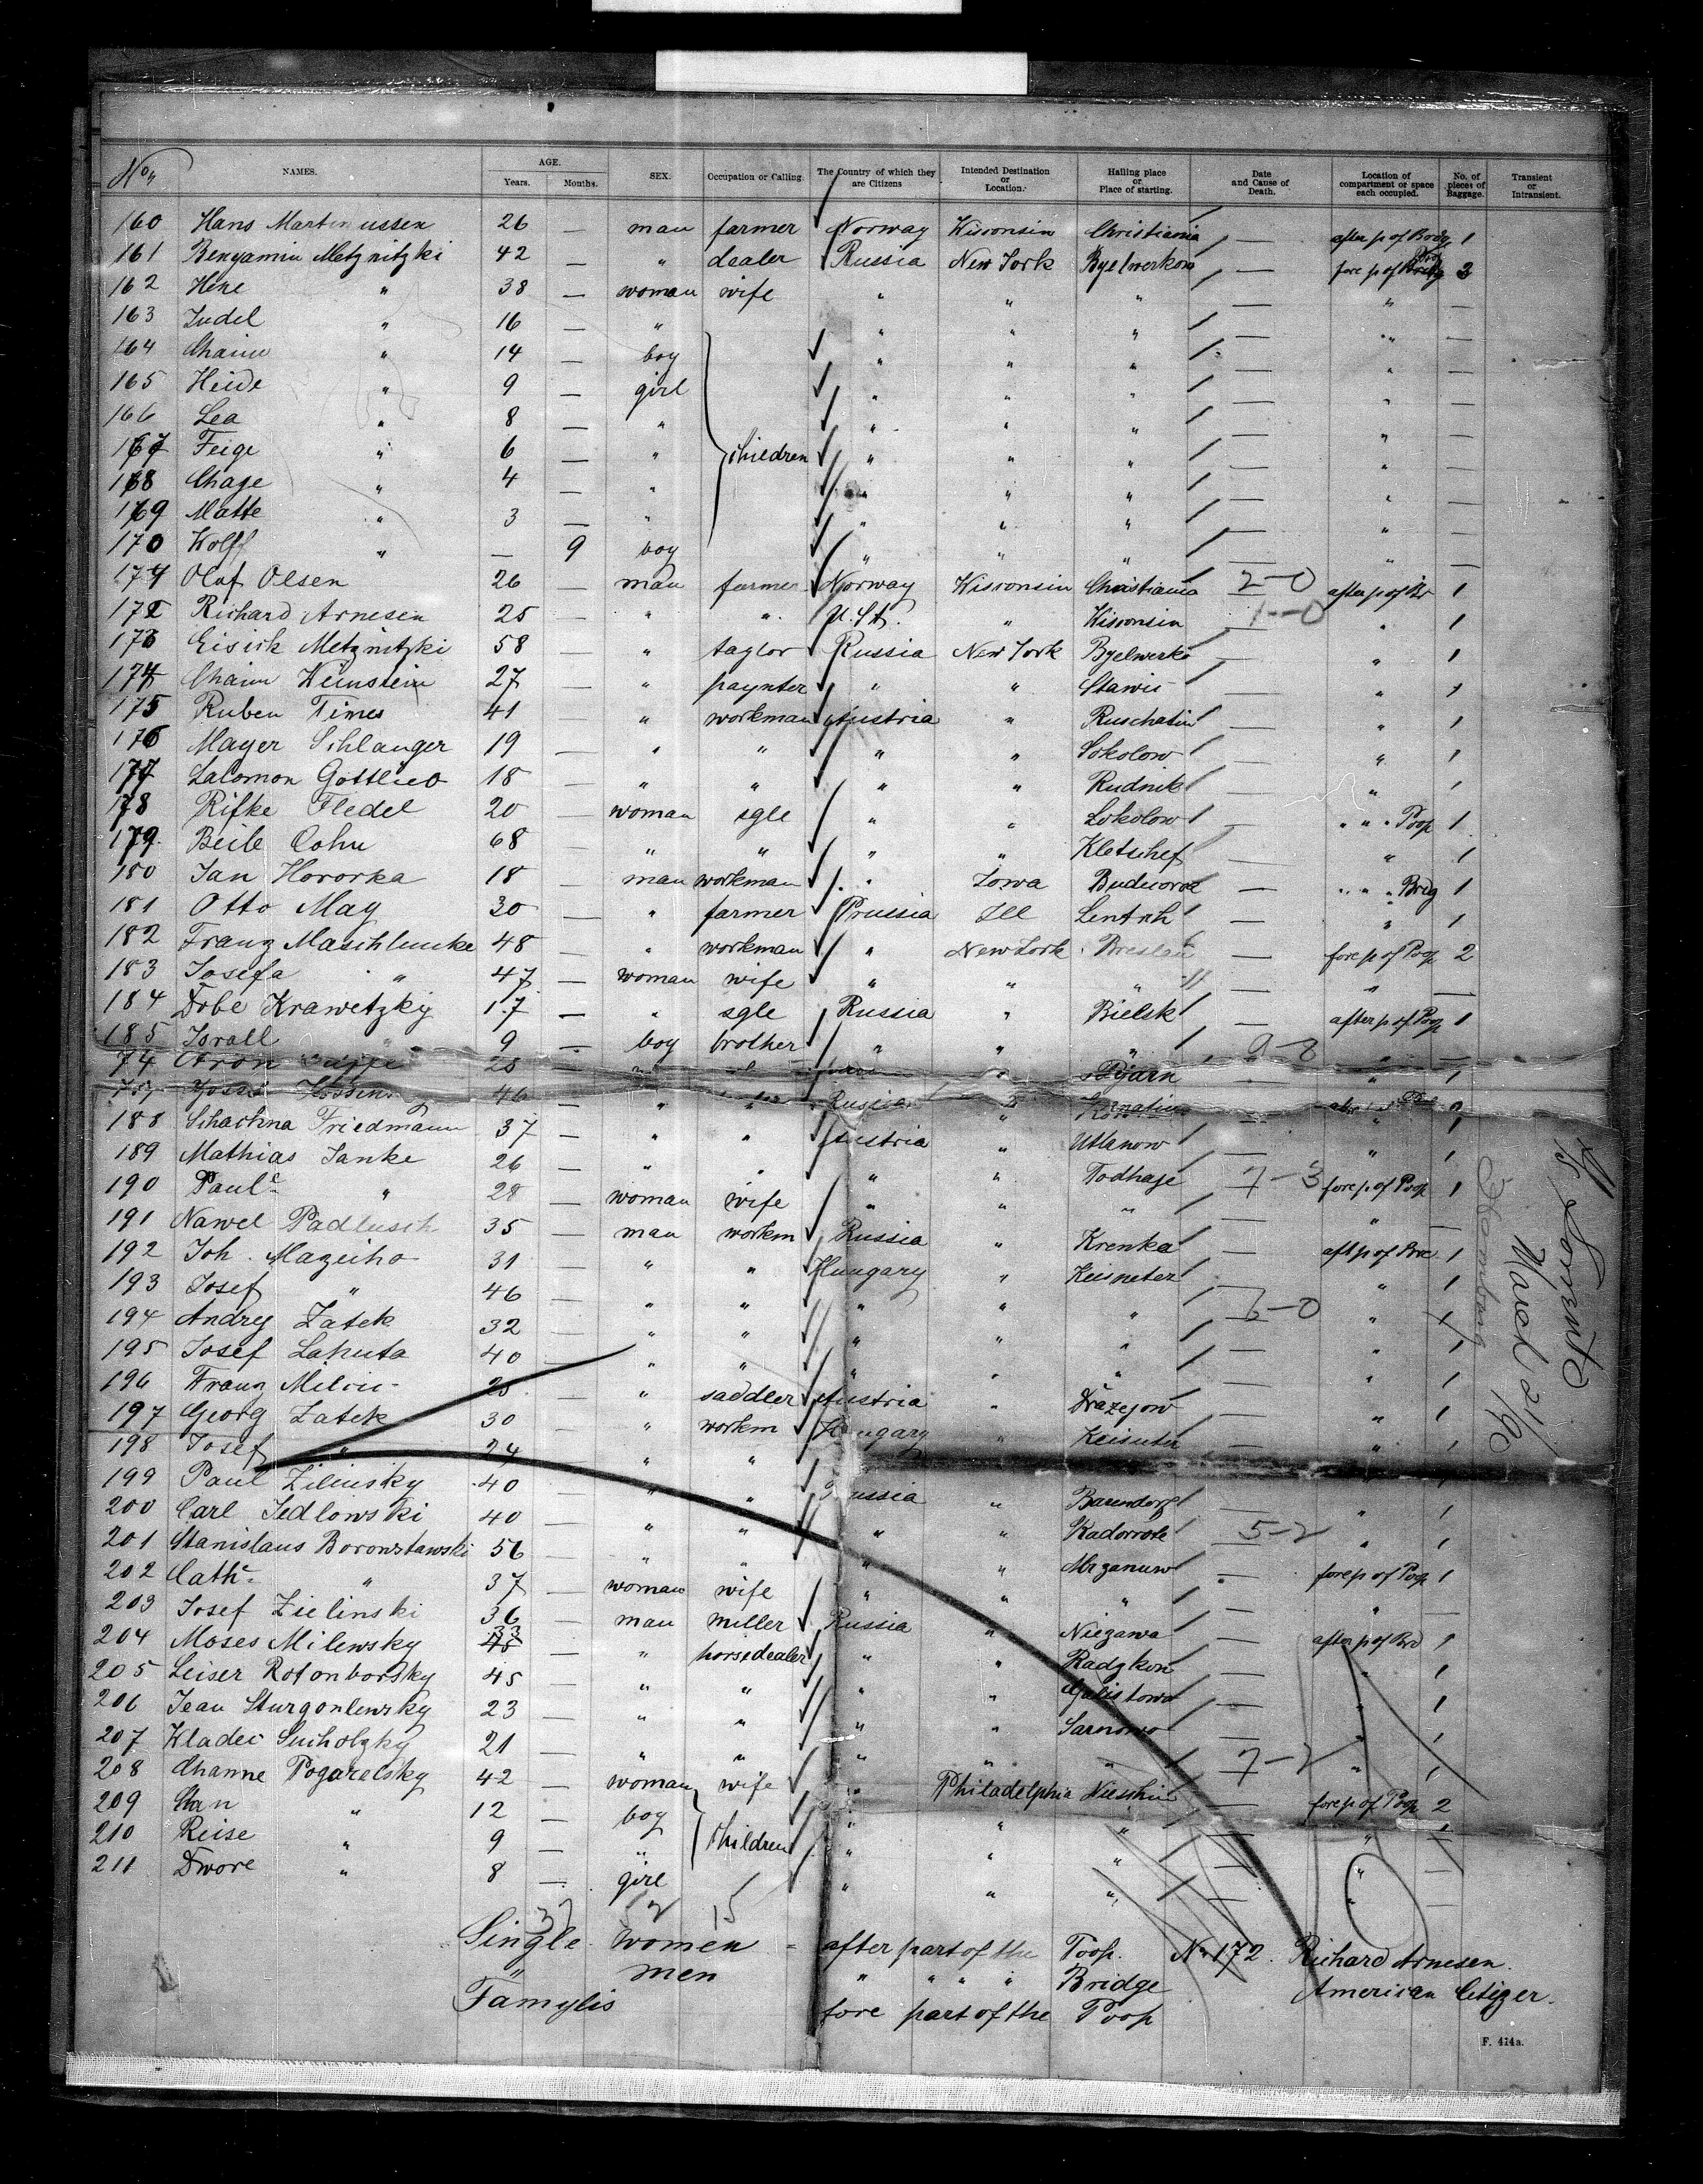 No.
NAMES. AGE. Years. Months. SEX. Occupation or Calling. The Country of which they are Citizens Intended Destination or Location. Hailing place or Place of starting. Date and Cause of Death. Location of compartment or space each occupied. No. of pieces of Baggage. Transient or Intransient.
160 Hans Martinussen 26 — man farmer Norway Wisconsin Christiania — after p of Brdg 1
161 Benyamin Metznitzki 42 — " dealer Russia New York Byelwerkow — fore p of 3
162 Hine " 38 — woman wife " " " — " —
163 Judel " 16 — " " " " — " —
164 Chaim " 14 — boy " " " — " —
165 Heide " 9 — girl " " " — " —
166 Lea " 8 — " " " " — " —
167 Feige " 6 — " children " " " — " —
168 Chage " 4 — " " " " — " —
169 Matte " 3 — " " " " — " —
170 Wolff " — 9 boy " " " — " —
171 Olaf Olsen 26 — man farmer Norway Wisconsin Christiania 2-0 after p of Br 1
172 Richard Arnesen 25 — " " U. St. " Wisconsin 1-0 " 1
173 Eisick Metznitzki 58 — " taylor Russia New York Byelwerke — " 1
174 Chaim Weinstein 27 — " paynter " " Stawis — " 1
175 Ruben Times 41 — " workman Austria " Ruschatin — " 1
176 Mayer Schlanger 19 — " " " " Sokolow — " 1
177 Salomon Gottlieb 18 — " " " " Rudnik — " 1
178 Rifke Fledel 20 — woman sgle " " Sokolow — " " " Poop 1
179 Beile Cohn 68 — " " " " Kletschef — " 1
180 Jan Hororka 18 — man workman " Iowa — " " " Brdg 1
181 Otto May 30 — " farmer Prussia Ill — " 1
182 Franz 48 — " workman " New York Breslau — fore p of Poop 2
183 Josefa " 47 — woman wife " " " — " —
184 Dobe Krawetzky 17 — " sgle Russia " Bielsk — after p of Poop 1
185 Israll " 9 — boy brother " " " 9-8 " —
74 Aron 28 " " " " 1
46 " " Russia "
188 Schachna Friedmann 37 — " " Austria " Utlanow — " 1
189 Mathias Janke 26 — " " " " Todhaje 7-3 fore p of Poop 1
190 Paule " 28 — woman wife " " " — " —
191 Nawel Padlusch 35 — man workm Russia " Krenka — aft p of Bre 1
192 Joh. Mazeiho 31 — " " Hungary " Keisneter — " 1
193 Josef " 46 — " " " " " 6-0 " 1
194 Andrey Zatek 32 — " " " " " — " 1
195 Josef Lahuta 40 — " " " " " — " 1
196 Franz 25 — " saddler Austria " Drazejow — " 1
197 Georg Zatek 30 — " workm Hungary " — " 1
198 Josef " 24 — " "
199 Paul Zilinsky 40 — " " Prussia " Barendorf — " 1
200 Carl Jedlowski 40 — " " " " 5-2 " 1
201 Stanislaus Boronstawski 56 — " " " " Mrzanuw fore p of Poop 1
202 Cathe " 37 — woman wife " " " — " —
203 Josef Zielinski 36 — man miller Russia " Niezawa — after p of Brd 1
204 Moses Milewsky 33 — " horsedealer " " — " 1
205 Leiser Rotonborsky 45 — " " " " — " 1
206 Jean Sturgonlewsky 23 — " " " " Sarnowo — " 1
207 Wladec Sucholzky 21 — " " " " " 7-2 " 1
208 Channe Pogarelsky 42 — woman wife " Philadelphia Nieshin — fore p of Poop 2
209 " 12 — boy " " " — " —
210 Reise " 9 — " children " " " — " —
211 Dwore " 8 — girl " " " — " —
37 15
Single women - after part of the Poop. No 172. Richard Arnesen.
" men " " " " Bridge American Citizen.
Famylis fore part of the Poop
F. 414a.
S/S Sorrento
Hamburg